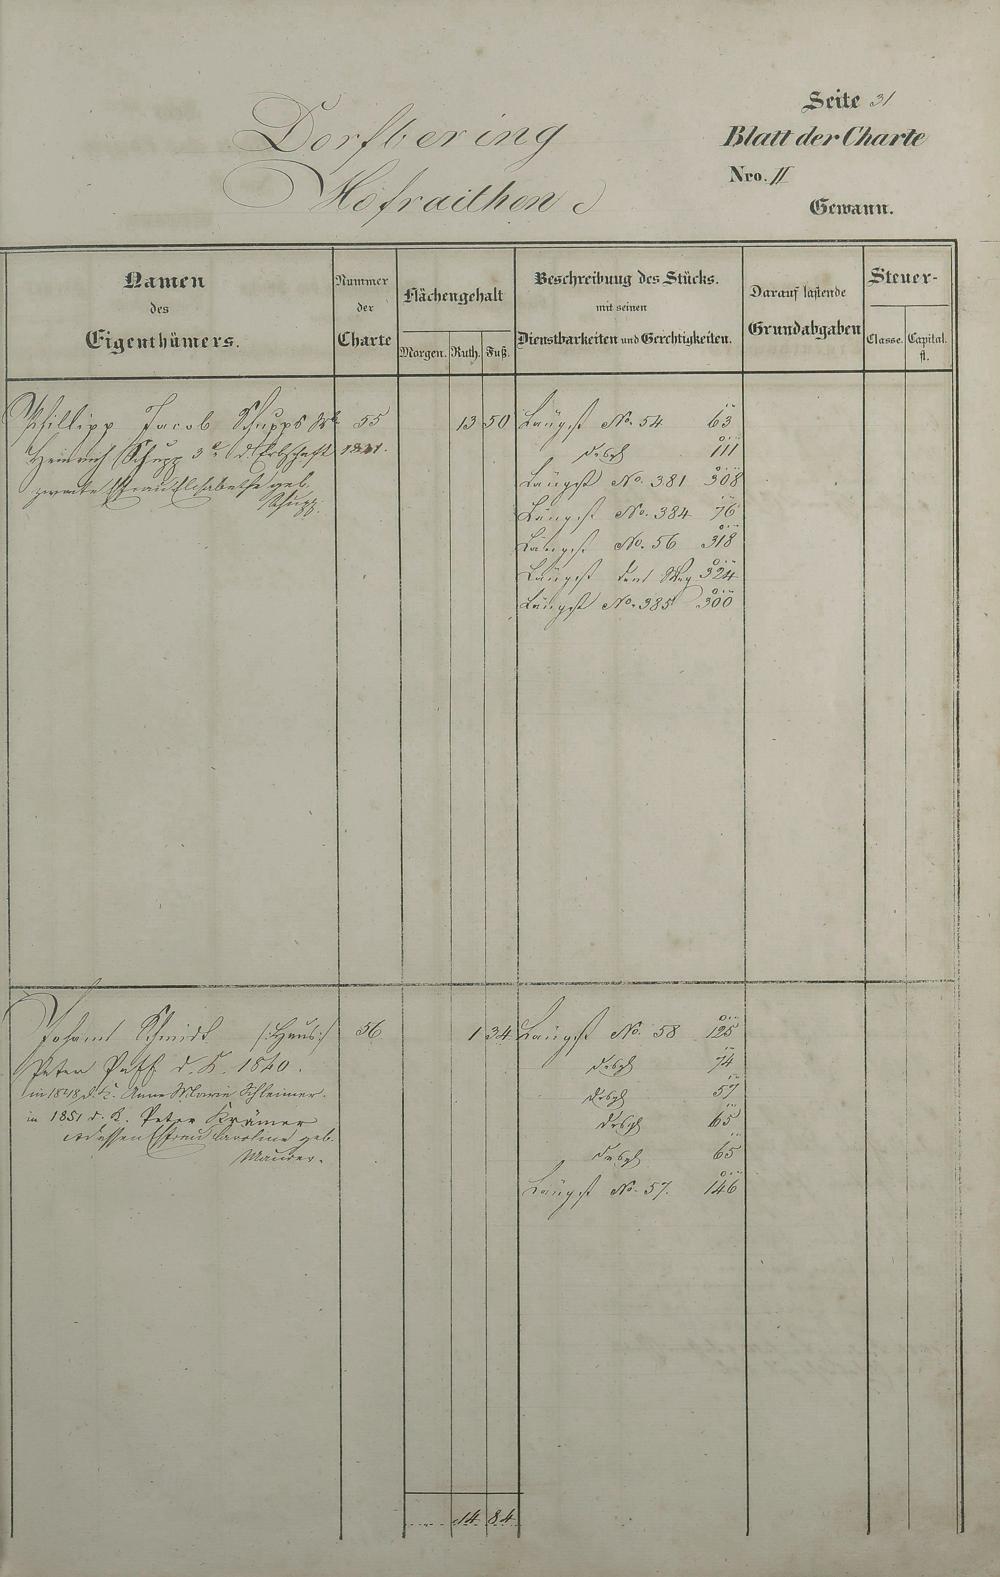 Seite 31
Dorfbering
Blatt der Charte
Hofraithen
Nro. II
Gewann.
Namen
des
Eigenthümers.
Nummer
der
Charte
Flächengehalt
Morgen. Ruth. Fuß.
Beschreibung des Stücks.
mit seinen
Dienstbarkeiten und Gerechtigkeiten.
Darauf lastende
Grundabgaben
Steuer-
Classe. Capital.
fl.
Phillipp Jacob Schupps 55 13 50 Längst No. 54 63
Heinrich Schupp 3r d. Erbschaft 1841. desgl 111
zweite Frau Elisabetha geb. Längst No. 381 308
Schupp. Längst No. 384 76
Längst No. 56 318
Längst dem Weg 324
Längst No. 385 300
Johannt Schmidt (:Haus:) 56 1 34 Längst No. 58 125
Peter Paff d. K. 1840. desgl 74
in 1848 d. K. Anna Maria Schleimer. desgl 57
in 1851 d. K. Peter Krämer desgl 65
dessen Ehefrau Caroline geb. desgl 65
Maurer. Längst No. 57. 146
14 84